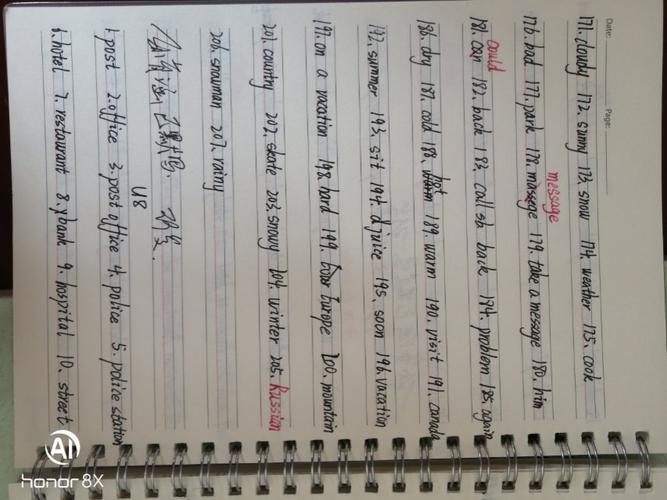 Date: Page:
171. cloudy 172. sunny 173. snow 174. weather 175. cook
message
176. bad 177. park 178. massege 179. take a message 180. him
could
181. can 182. back 183. call sb back 184. problem 185. again
hot
186. dry 187. cold 188. warm 189. warm 190. visit 191. canada
192. summer 193. sit 194. juice 195. soon 196. vacation
197. on a vacation 198. hard 199. Europe 200. mountain
201. country 202. skate 203. snowy 204. winter 205. Russian
206. snowman 207. rainy
U8
1. post 2. office 3. post office 4. police 5. police station
6. hotel 7. restaurant 8. bank 9. hospital 10. street
AI
honor 8X